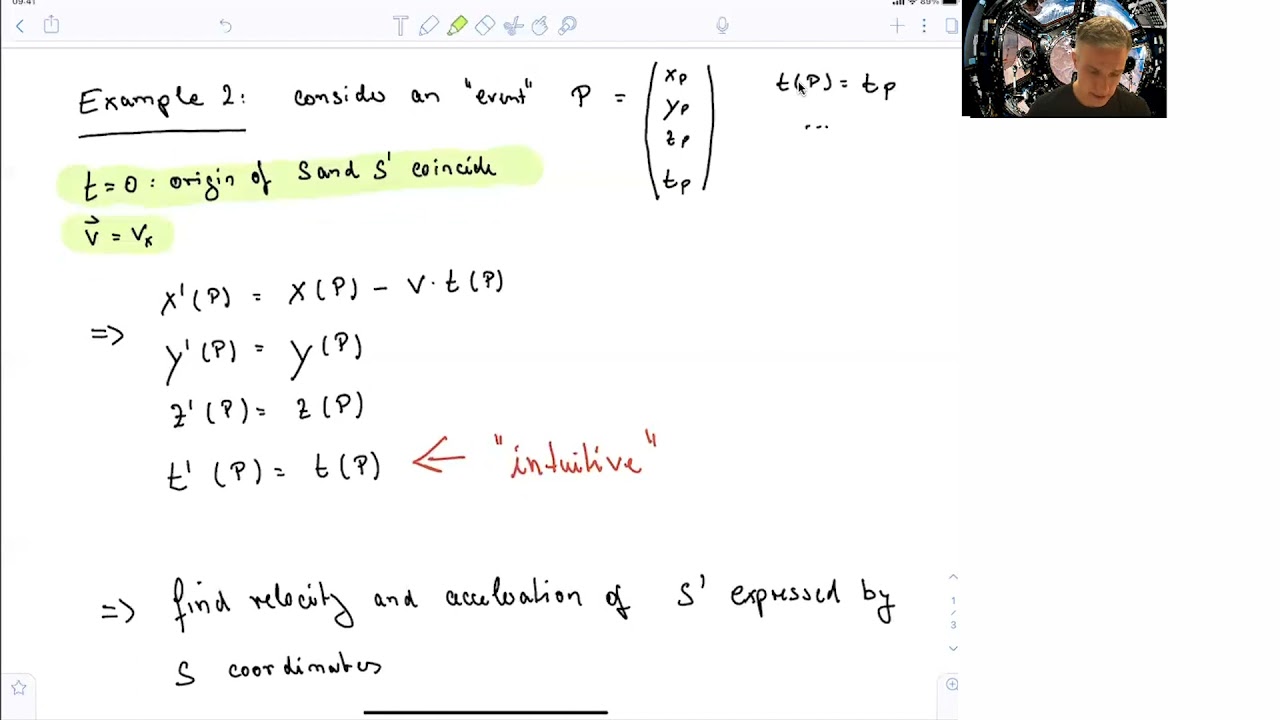 09:41
89%
Example 2: consider an "event" P = (x_P y_P z_P t_P) t(P) = t_P
...
t = 0 : origin of S and S' coincide
v⃗ = v_x
x'(P) = x(P) - v · t(P)
=> y'(P) = y(P)
z'(P) = z(P)
t'(P) = t(P) <— "intuitive"
=> find velocity and acceleration of S' expressed by
S coordinates
1
/
3